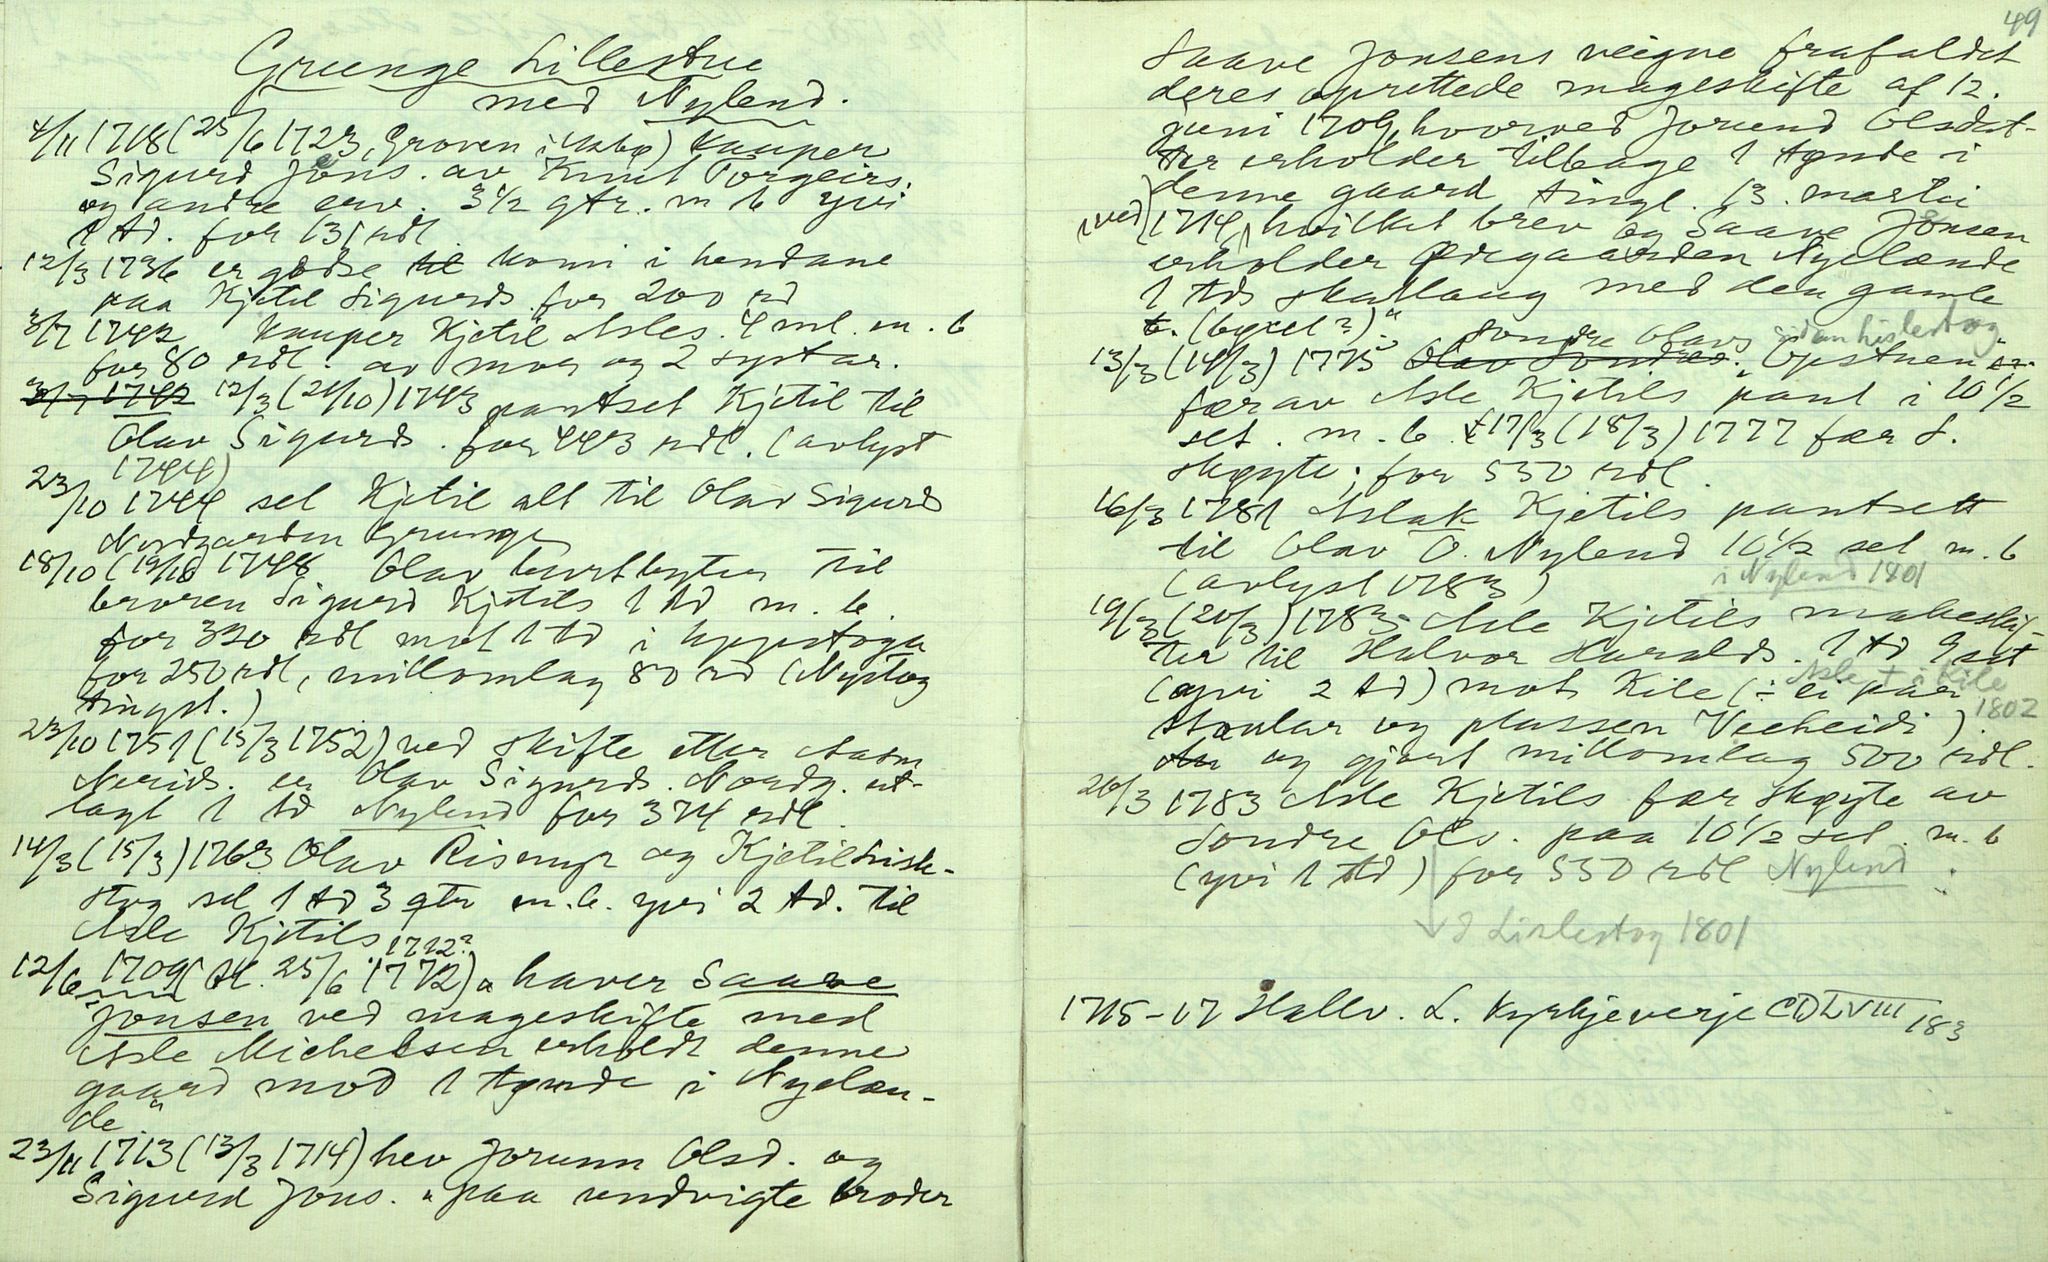 Grunge Lillestue
med Nylend.
4/11 1718 (25/6 1723, Groven i) kauper
Sigurd Jons. av Knut Torgeirs.
og andre erv. 3 1/2 qtr. m b yvi
1 td. for 131 rdl
12/3 1736 er godse til komi i hendane
paa Kjetil Sigurds. for 200 rd
3/7 1742 kauper Kjetil Asles. 4 ml. m. b
for 80 rdl. av mor og 2 systar.
3/7 1742 12/3 (21/10) 1743 pantset Kjetil til
Olav Sigurds. for 443 rdl. (avlyst
1744)
23/10 1744 sel Kjetil alt til Olav Sigurds
Nordgarden Grunge
18/10 (19/10) 1748 Olav burtbyter til
broren Sigurd Kjetils 1 td m. b.
for 320 rdl mot 1 td i Uppistoga
for 250 rdl, millomlag 80 rd (Nystog
tingst.)
23/10 1751 (15/3 1752) ved skifte etter Aasm
Nerids. er Olav Sigurds. Nordg. ut-
lagt 1 td Nylend for 374 rdl.
14/3 (15/3) 1763 Olav Rismyr og Kjetil Lisle-
stog sel 1 td 3 qtr m. b. yvi 2 td. til
Asle Kjetils.
1712?
12/6 1709 (tl. 25/6 1772) "haver Saave
Jonsen ved mageskifte med
Asle Michelsen erholdt denne
gaard mod 1 tønde i Nyelæn-
de"
23/11 1713 (13/3 1714) hev Jorunn Olsd. og
Sigurd Jons. "paa undvigte broder
49
Saave Jonsens veigne frafaldet
deres oprettede mageskifte af 12.
juni 1709, hvorved Jorund Olsdat-
ter erholder tilbage 1 tønde i
denne gaard tingl. 13. martii
(ved) 1714, hvilket brev og Saave Jonsen
erholder Ødegaarden Nyelænde
1 tds skatlaug med den gamle
b. (byxel?)."
Sondre Olavs sidan Lislestog
13/3 (14/3) 1775 Olav Sondres. Opstuen
fær av Asle Kjetils pant i 10 1/2
set. m. b. 17/3 (18/3) 1777 fær S.
skøyte; for 550 rdl.
16/3 1781 Aslak Kjetils pantsett
til Olav O. Nylend 10 1/2 set m. b
(avlyst 1783) i Nylend 1801
19/3 (20/3) 1783 Asle Kjetils makeskif-
ter til Halvor Haralds. 1 td 9 set
(yvi 2 td) mot Kile (÷ ei par
Asle + i Kile 1802
stovlar og plassen Vecheidi)
og gjevt millomlag 500 rdl.
20/3 1783 Asle Kjetils fær skøyte av
Sondre Ols. paa 10 1/2 set. m. b
(yvi 1 td) for 550 rdl Nylend
I Lislestog 1801
1715-17 Hallv. L. kyrkjeverje CDLVIII 183